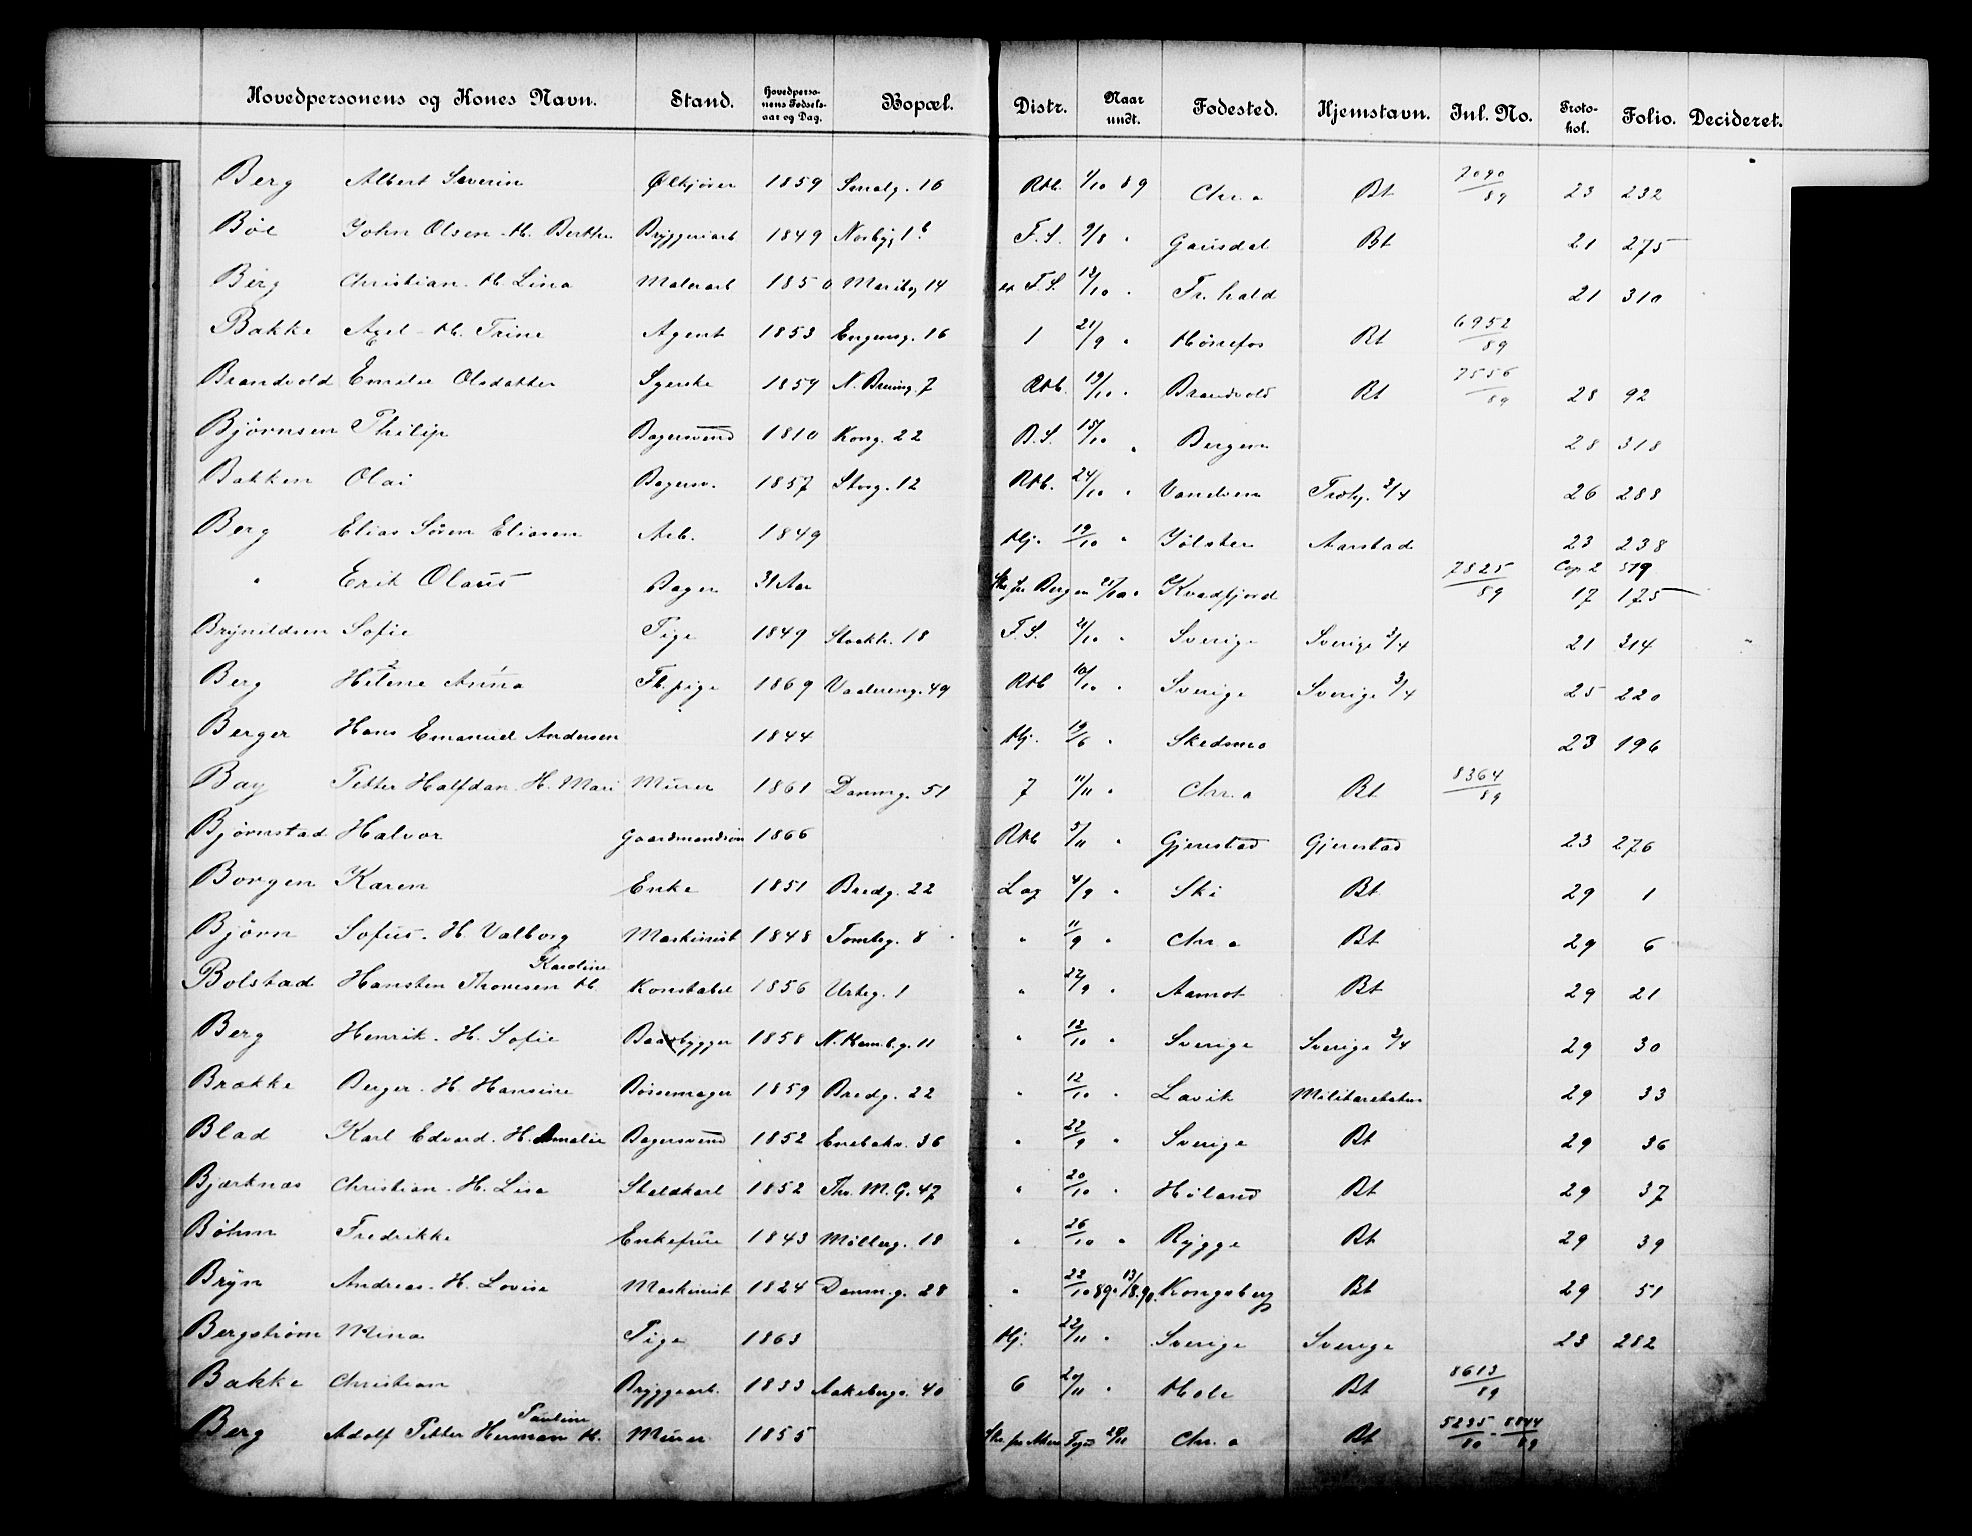 Hovedpersonens og Kones Navn. Stand. Hovedpersonens Fødselsaar og Dag. Bopæl. Distr. Naar undt. Fødested. Hjemstavn. Jul. No. Protokol. Folio. Decideret.
Berg Albert Severin Ølkjører 1859 Smalg. 16 Rtb. 1/10 89 Chr.a Bt 7090/89 23 232
Böe John Olsen H. Berthe Bryggeriarb 1849 F.S. 9/8 " Gausdal Bt 21 275
Berg Christian. H. Lina Malerarb 1850 Maribg 14 F.S. 12/10 " Fr.hald 21 310
Bakke Axel H. Trine Agent 1853 Engensg. 16 1 21/9 " Hönefos Bt 6952/89
Brandvold Emelie Olsdatter Syerske 1859 N. Bruung. 7 Rtb. 19/10 " Brandvold Bt 7556/89 28 92
Björnsen Philip Bagersvend 1810 Kong. 22 B.S. 15/10 " Bergen 28 318
Bakken Olai Bagersv. 1857 Storg. 12 Rtb. 24/10 " 3/4 26 288
Berg Elias Sören Eliasen Arb. 1849 Hj. 19/10 " Jölster Aarstad 23 238
" Erik Olaus Bager 31 Aar Skr. fr Bergen 21/10 " Kvædfjord 7825/89 Cop 2 519 17 175
Brynildsen Sofie Pige 1849 Stockh. 18 F.S. 21/10 " Sverige Sverige 3/4 21 314
Berg Helene Anna Fb.pige 1869 Vadereng. 49 Rtb 10/10 " Sverige Sverige 3/4 25 220
Berger Hans Emanuel Andersen 1844 Hj. 19/6 " Skedsmo 23 196
Bay Petter Halfdan. H. Mari Murer 1861 Danmg. 51 7 11/11 " Chr.a Bt 8364/89
Björnstad Halvor Gaardmandssön 1866 Rtb 5/11 " Gjerestad Gjerestad 23 276
Borgen Karen Enke 1851 Bredg. 22 Lag 4/9 " Ski Bt 29 1
Björn Sofus. H. Valborg Maskinist 1848 Tomteg. 8 " 11/9 " Chr.a Bt 29 6
Bolstad Hansten Thoresen H. Karoline Konstabel 1856 Urteg. 1 " 27/9 " Aamot Bt 29 21
Berg Henrik. H. Sofie Baadbygger 1858 N. Kamb.g. 11 " 12/10 " Sverige Sverige 3/4 29 30
Brække Berger. H. Hansine Bössemager 1859 Bredg. 22 " 12/10 " Lavik 29 33
Blad Karl Edvard. H. Amalie Bagersvend 1852 Enebakv. 36 " 22/9 " Sverige Bt 29 36
Bjærknæs Christian. H. Lise Staldkarl 1852 Thv. M. G. 47 " 20/10 " Höland Bt 29 37
Böhm Fredrikke Enkefrue 1843 Mölleg. 18 " 26/10 " Rygge Bt 29 39
Bryn Andreas. H. Lovise Maskinist 1824 Danm.g. 28 " 22/10 89 Kongsberg Bt 29 51
Bergström Mina Pige 1863 Hj. 22/11 " Sverige Sverige 23 282
Bakke Christian Bryggearb. 1833 Aakebergv. 40 6 20/11 " Hole Bt 8613/89
Berg Adolf Petter Herman H. Pauline Murer 1855 Skr. fr Chr.a Bt 5235/80 - 8844/89